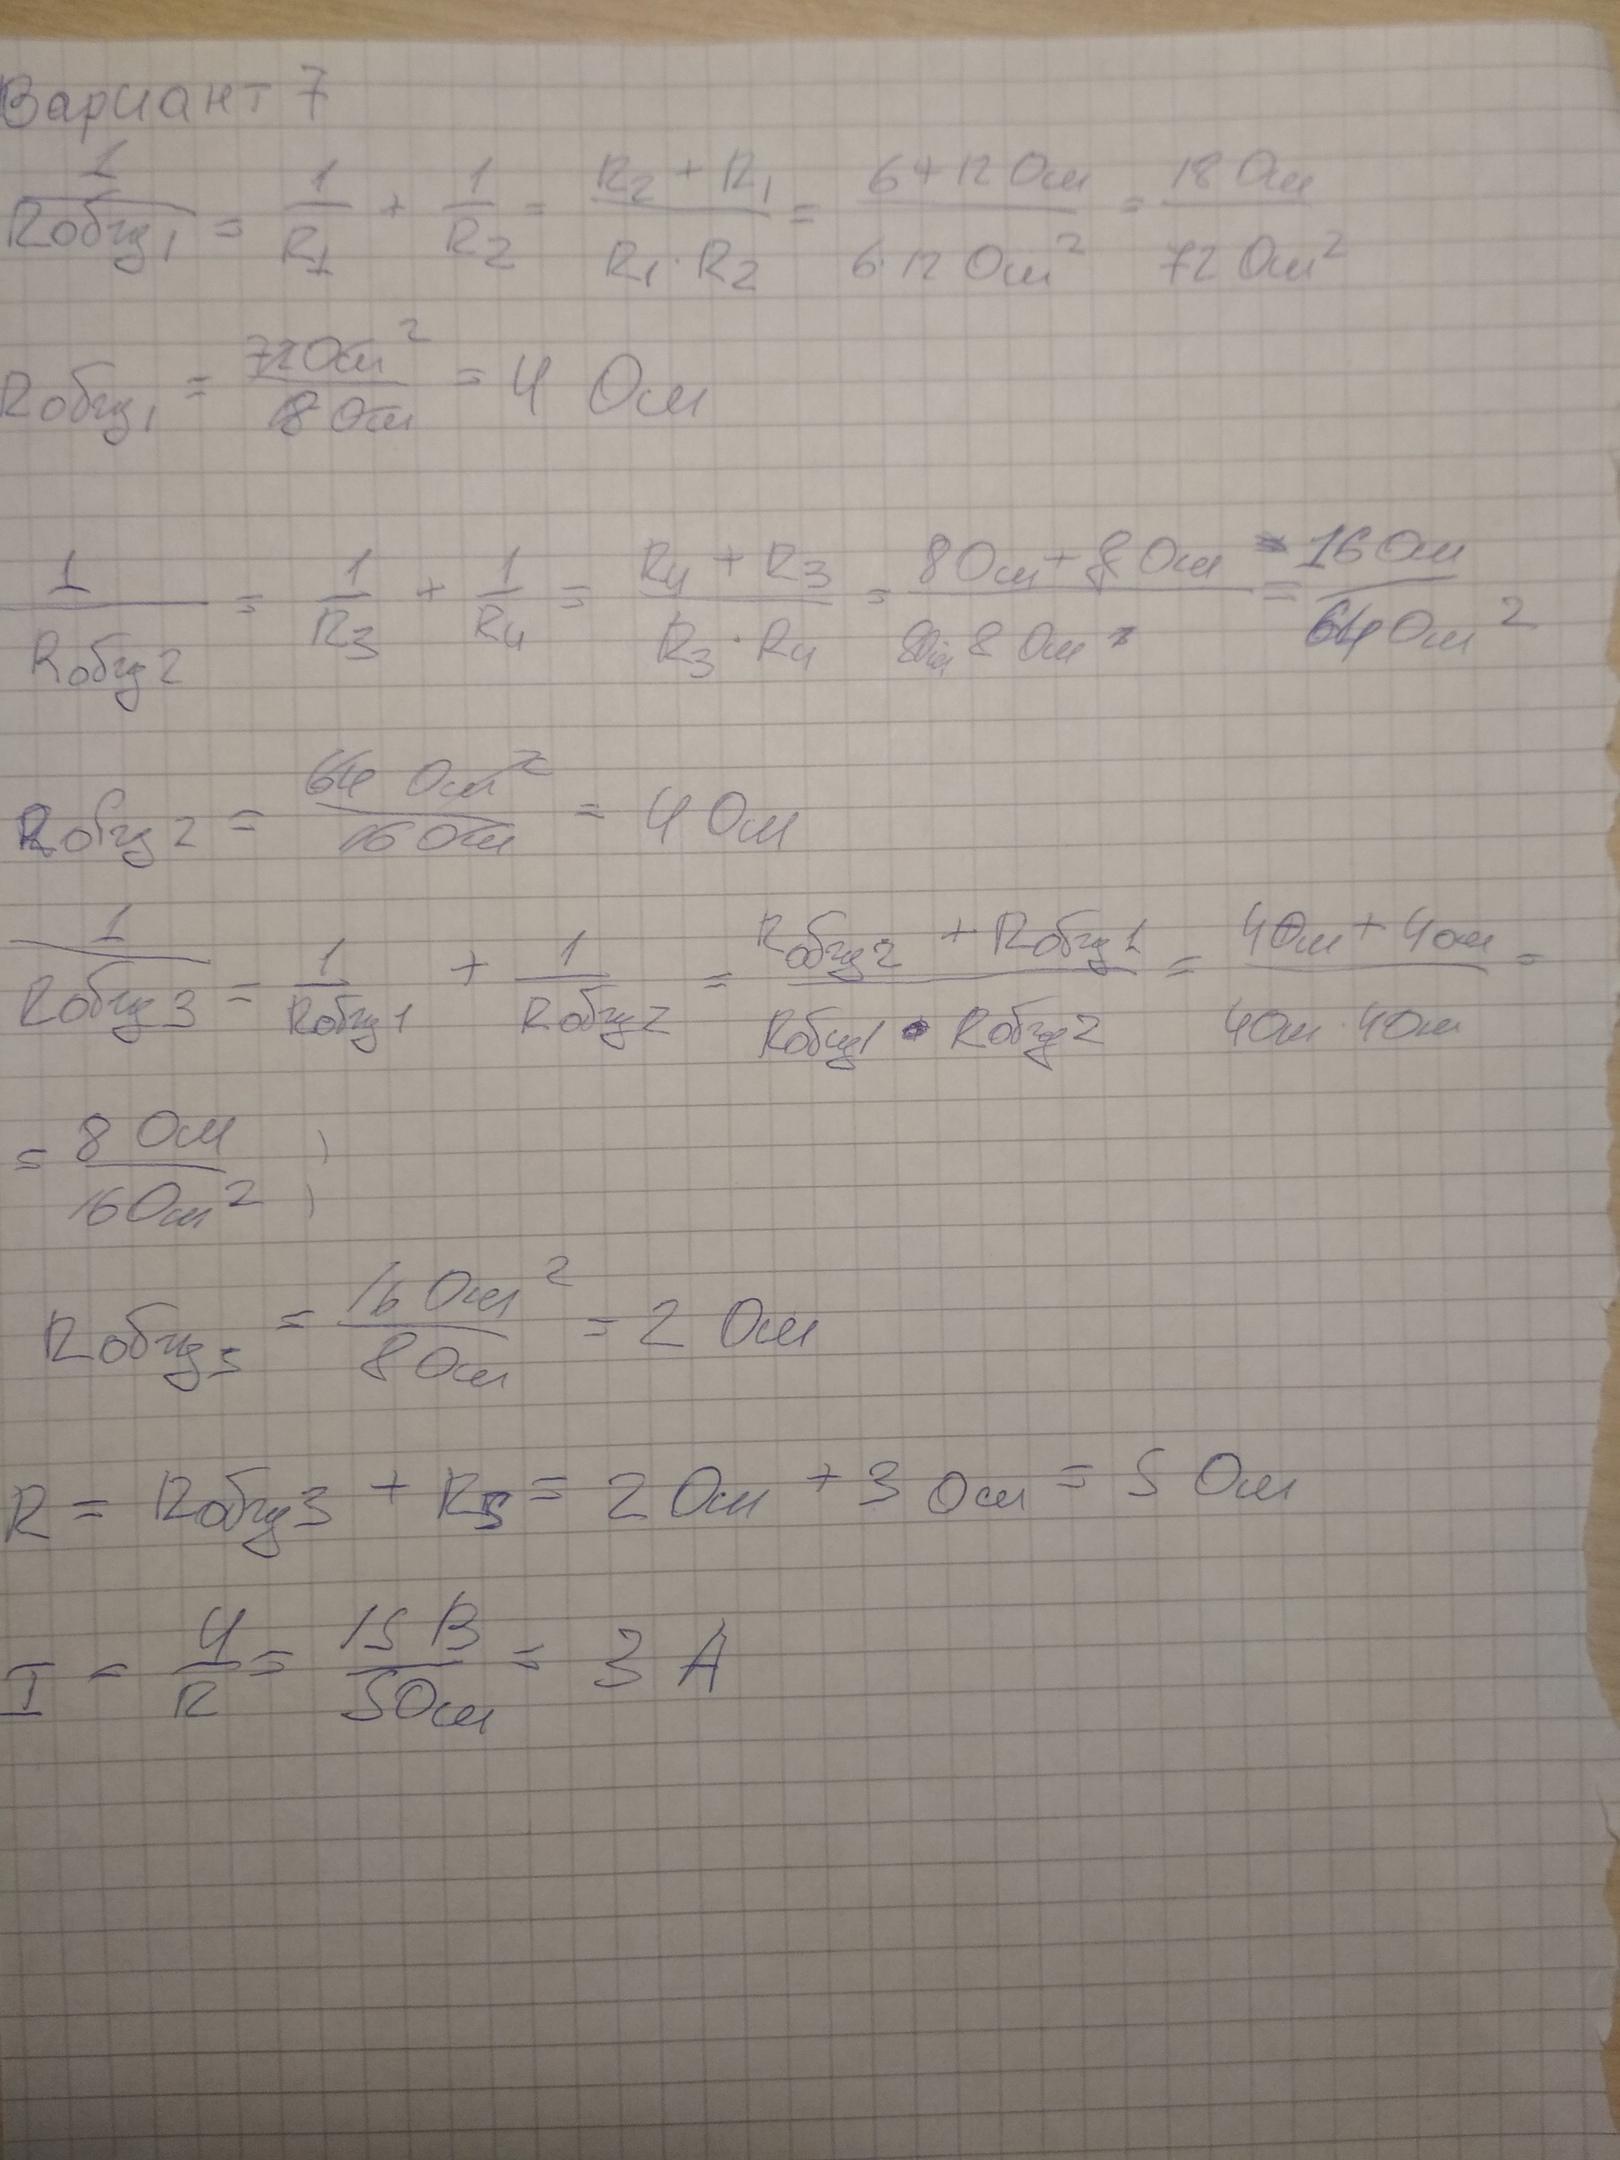 Вариант 7
1/Rобщ1 = 1/R1 + 1/R2 = (R2 + R1)/(R1 · R2) = (6+12 Ом)/(6·12 Ом²) = 18 Ом/72 Ом²
Rобщ1 = 72 Ом²/18 Ом = 4 Ом
1/Rобщ2 = 1/R3 + 1/R4 = (R4 + R3)/(R3 · R4) = (8 Ом + 8 Ом)/(8 Ом · 8 Ом) = 16 Ом/64 Ом²
Rобщ2 = 64 Ом²/16 Ом = 4 Ом
1/Rобщ3 = 1/Rобщ1 + 1/Rобщ2 = (Rобщ2 + Rобщ1)/(Rобщ1 · Rобщ2) = (4 Ом + 4 Ом)/(4 Ом · 4 Ом) =
= 8 Ом/16 Ом²
Rобщ3 = 16 Ом²/8 Ом = 2 Ом
R = Rобщ3 + R5 = 2 Ом + 3 Ом = 5 Ом
I = U/R = 15 В/5 Ом = 3 А